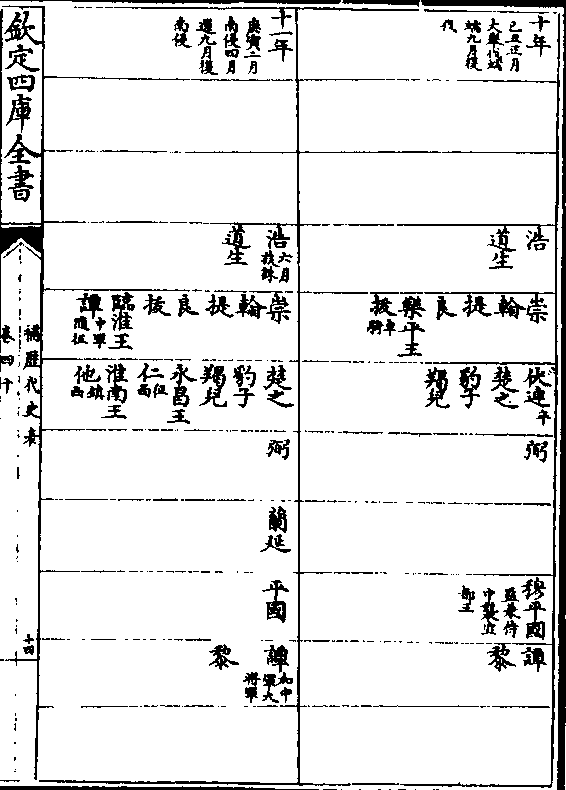 十年
己丑正月
大舉伐蠕
蠕九月後
伐
浩
道生
崇
輪
提
良
樂平王
拔 車騎
伏連 卒
楚之
豹子
羯兒
弼
穆平國
兼侍
中襲宜
都王
譚
黎
十一年
庚寅二月
南侵四月
還九月後
南侵
浩 六月被誅
道生
崇
輪
提
良
拔
臨淮王
譚 中軍
楚之
豹子
羯兒
永昌王
仁 征西
淮南王
他 鎮西
弼
蘭延
平國
譚
加中
軍大
將軍
黎
欽定四庫全書
補歷代史表
卷四十
十四